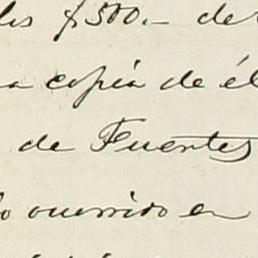 los $500.- de
a copia de él
de Fuentes
o ocurrido en